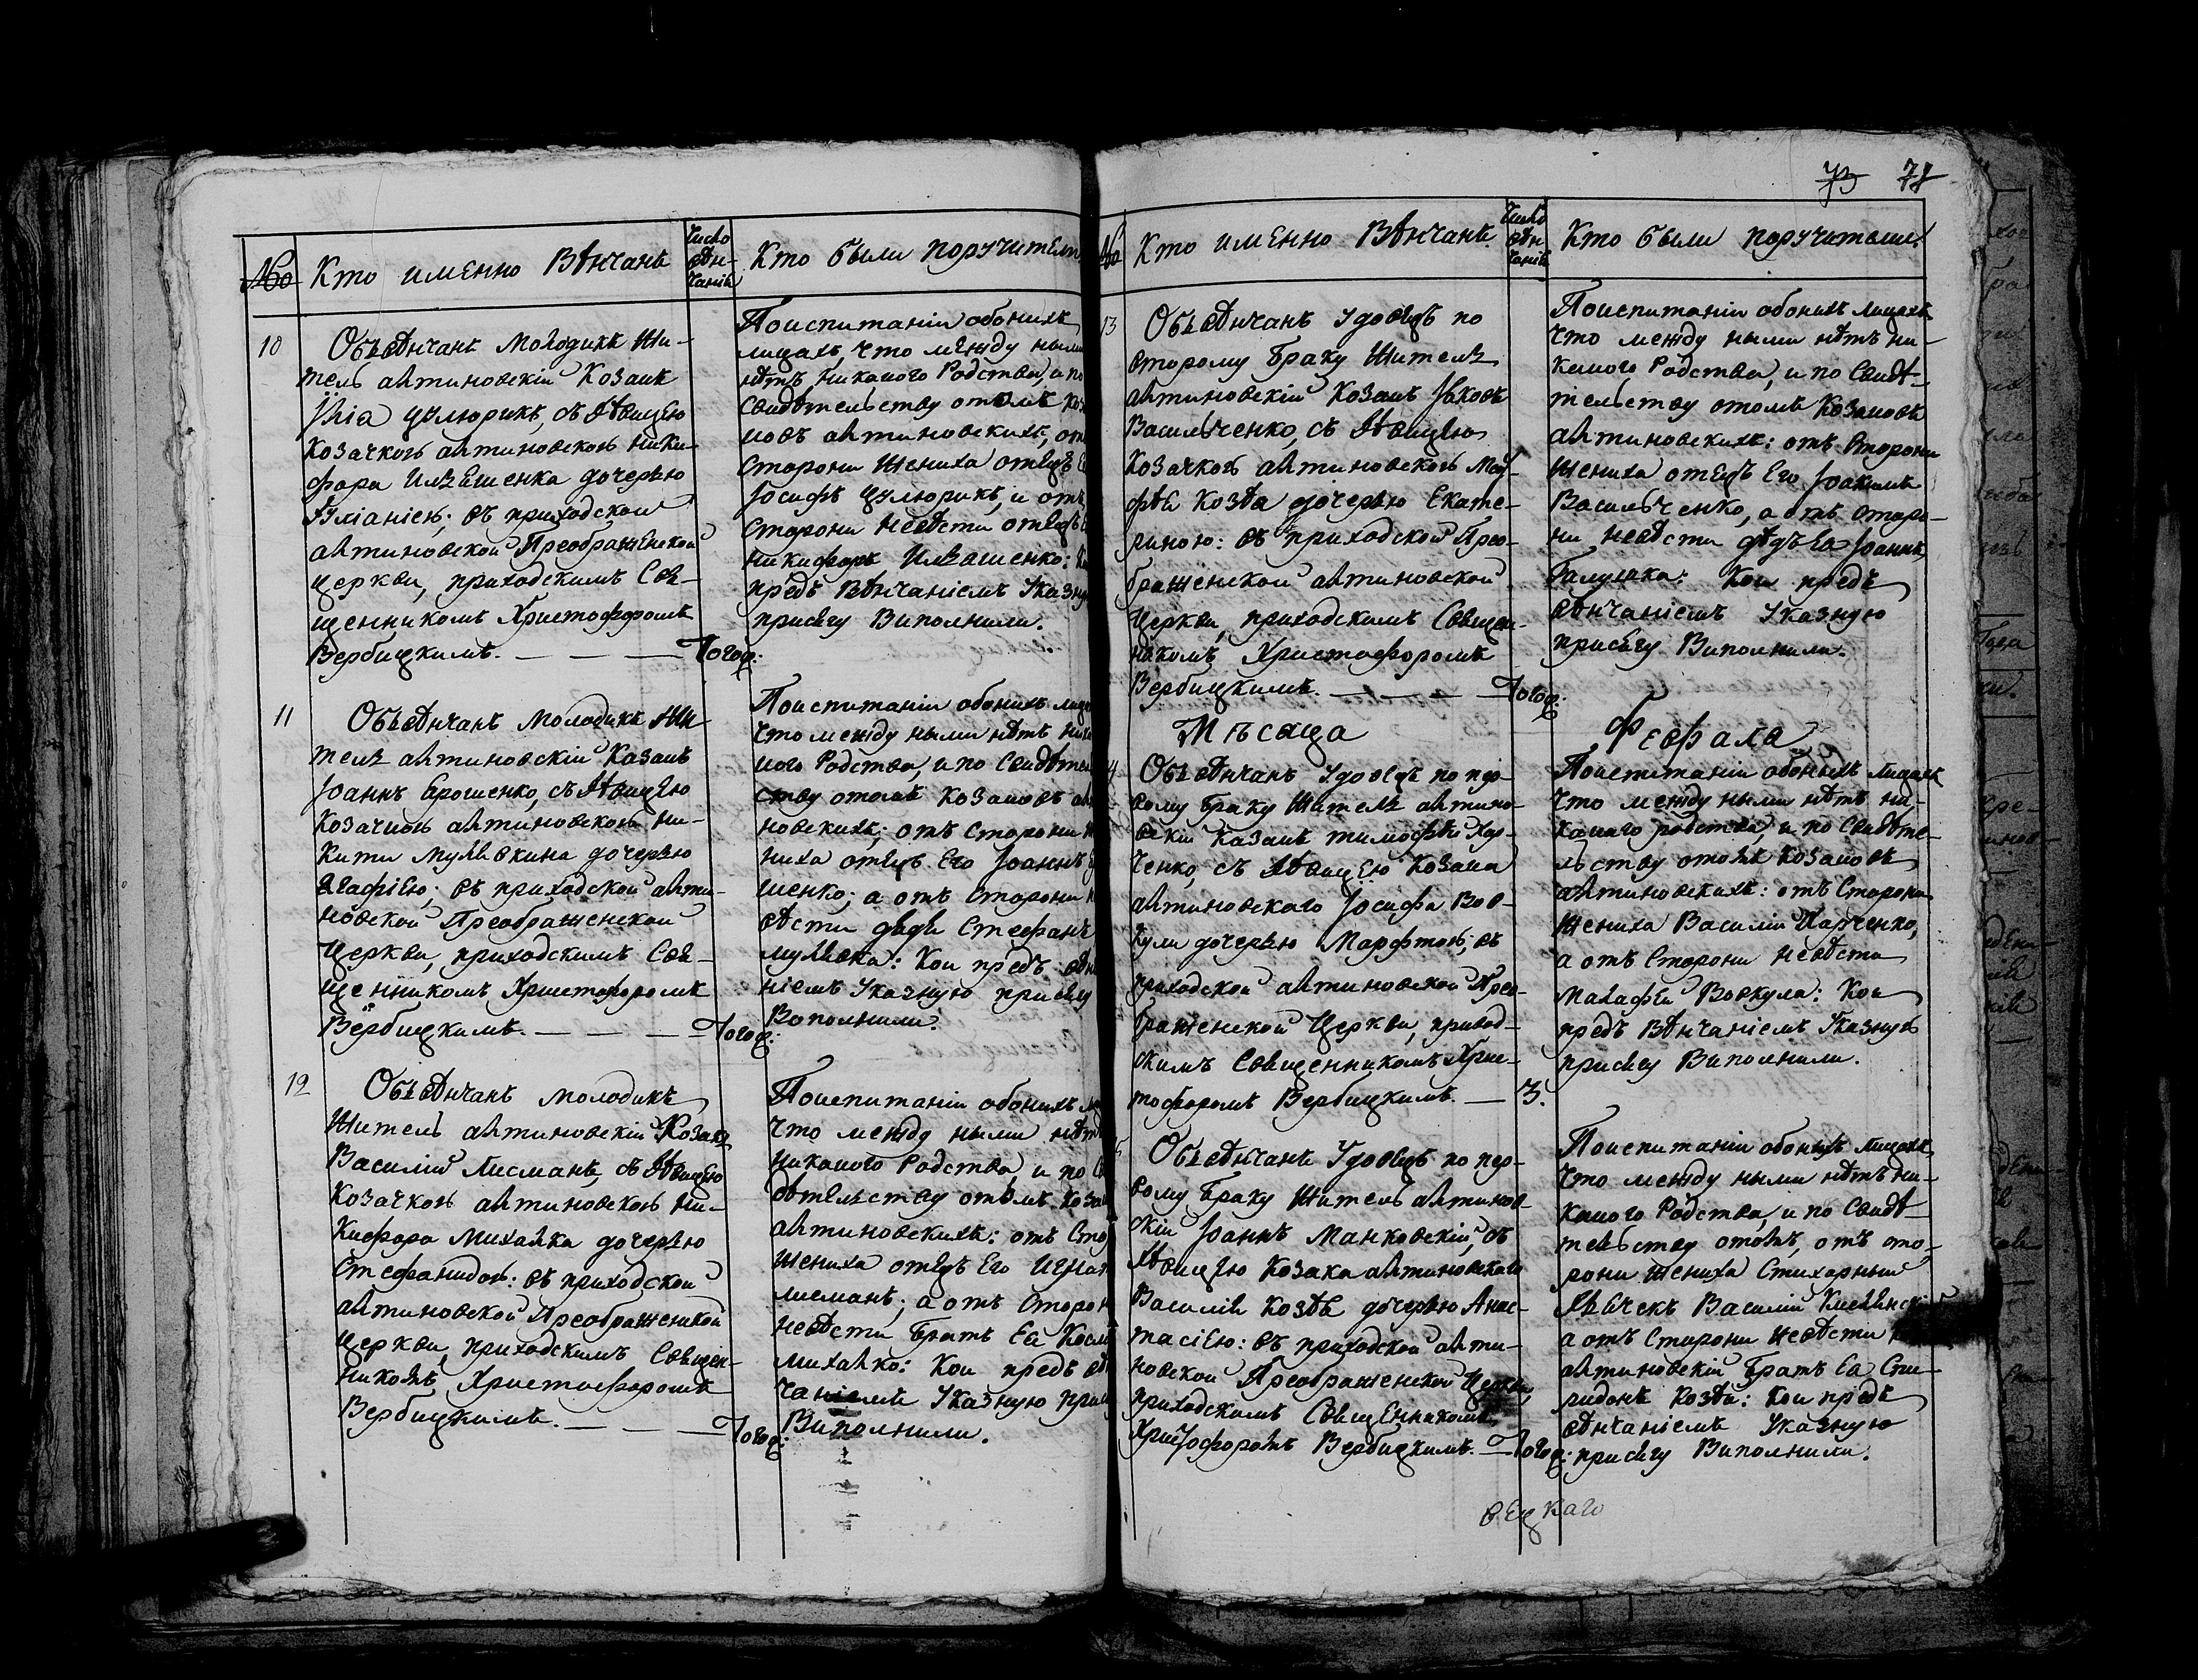 73 71
№ Кто именно вѣнчанъ Число вѣн- чанія Кто были поручители
10 Объвѣнчанъ молодикъ жи-
тель алтиновскій козакъ
Ілія Цѧлюрикъ, съ дѣвицею
козачкою алтиновскою Ники-
фора Илѧшенка дочерью
Іуліаніею: въ приходской
алтиновской Преображенской
церкви, приходскимъ свѧ-
щенникомъ Христофоромъ
Вербицкимъ. — — — Тогож:
По испитаніи обоихъ
лицахъ, что между ными
нѣтъ никакого родства, и по
свидѣтельству о томъ коза
ковъ алтиновскихъ, отъ
сторони жениха отецъ
Іосифъ Цѧлюрикъ, и отъ
сторони невѣсти отецъ
Никифоръ Илѧшенко:
предъ вѣнчаніемъ указную
присѧгу виполнили.
11 Объвѣнчанъ молодикъ жи-
тель алтиновскій казакъ
Іоаннъ Ерошенко, съ дѣвицею
козачкою алтиновскою Ни-
кити Мулѧвкина дочерью
Агафіею: въ приходской алти-
новской Преображенской
церкви, приходскимъ свѧ-
щенникомъ Христофоромъ
Вербицкимъ. — — — Тогож:
По испитаніи обоихъ лицахъ
что между ными нѣтъ ника
кого родства, и по свидѣтель
ству о томъ козаковъ ал
тиновскихъ; отъ сторони же
ниха отецъ его Іоаннъ Еро
шенко; а отъ сторони не
вѣсти дѧдѧ Стефанъ
Мулѧвка: кои предъ вѣн
ніемъ указную присѧгу
виполнили.
12 Объвѣнчанъ молодикъ
житель алтиновскій козакъ
Василій Лисманъ, съ дѣвицею
козачкою алтиновскою Ни-
кифора Михалка дочерью
Стефанидою: въ приходской
алтиновской Преображенской
церкви, приходскимъ свѧщен-
никомъ Христофоромъ
Вербицкимъ. — — — Тогож:
По испитаніи обоихъ
что между ными нѣтъ
никакого родства, и по сви
дѣтельству о томъ козак
алтиновскихъ: отъ сто
жениха отецъ его Игнат
Лисманъ; а отъ сторон
невѣсти братъ еѧ Косма
Михалко: кои предъ вѣн
чаніемъ указную присѧ
виполнили.
№ Кто именно вѣнчанъ Число вѣн чаній Кто были поручители
13 Объвѣнчанъ удовецъ по
второму браку житель
алтиновскій козакъ Іѧковъ
Васильченко, съ дѣвицею
козачкою алтиновскою Мат-
фѣѧ Козѣла дочерью Екате-
риною: въ приходской Прео-
браженской алтиновской
церкви, приходскимъ свѧщен-
никомъ Христофоромъ
Вербицкимъ. — — — Тогож:
По испитаніи обоихъ лицахъ
что между ными нѣтъ ни-
какого родства, и по свидѣ-
тельству о томъ козаковъ
алтиновскихъ: отъ сторони
жениха отецъ его Іоакимъ
Васильченко, а отъ сторо-
ни невѣсти дѣдъ еѧ Іоаннъ
Галушка: кои предъ
вѣнчаніемъ указную
присѧгу виполнили.
Мѣсяца Февраля
14 Объвѣнчанъ удовецъ по пер-
вому браку житель алтинов-
скій казакъ Тимофѣй Хар-
ченко, съ дѣвицею козака
алтиновского Іосифа Вов-
кули дочерью Марфтою; въ
приходской алтиновской Прео-
браженской церкви, приход-
скимъ свѧщенникомъ Хрис-
тофоромъ Вербицкимъ. — 3.
По испитаніи обоихъ лицахъ
что между ными нѣтъ ни-
какого родства, и по свидѣте-
льству о томъ козаковъ
алтиновскихъ: отъ сторони
жениха Василій Харченко,
а отъ сторони невѣсти
Малафѣй Вовкула: кои
предъ вѣнчаніемъ указную
присѧгу виполнили.
15 Объвѣнчанъ удовецъ по пер-
вому браку житель алтинов-
скій Іоаннъ Манковскій, съ
дѣвицею козака алтиновского
Василіѧ Козѣла дочерью Анас-
тасіею: въ приходской алти-
новской Преображенской церкви,
приходскимъ свѧщенникомъ
Христофоромъ Вербицкимъ. — Тогож:
По испитаніи обоихъ лицахъ
что между ными нѣтъ ни-
какого родства, и по свидѣ-
тельству о томъ, отъ сто-
рони жениха стихарный
дѧчекъ Василій
а отъ сторони невѣсти
алтиновскій братъ еѧ Спи-
ридонъ Козѣл: кои предъ
вѣнчаніемъ указную
присѧгу виполнили.
вецкаго